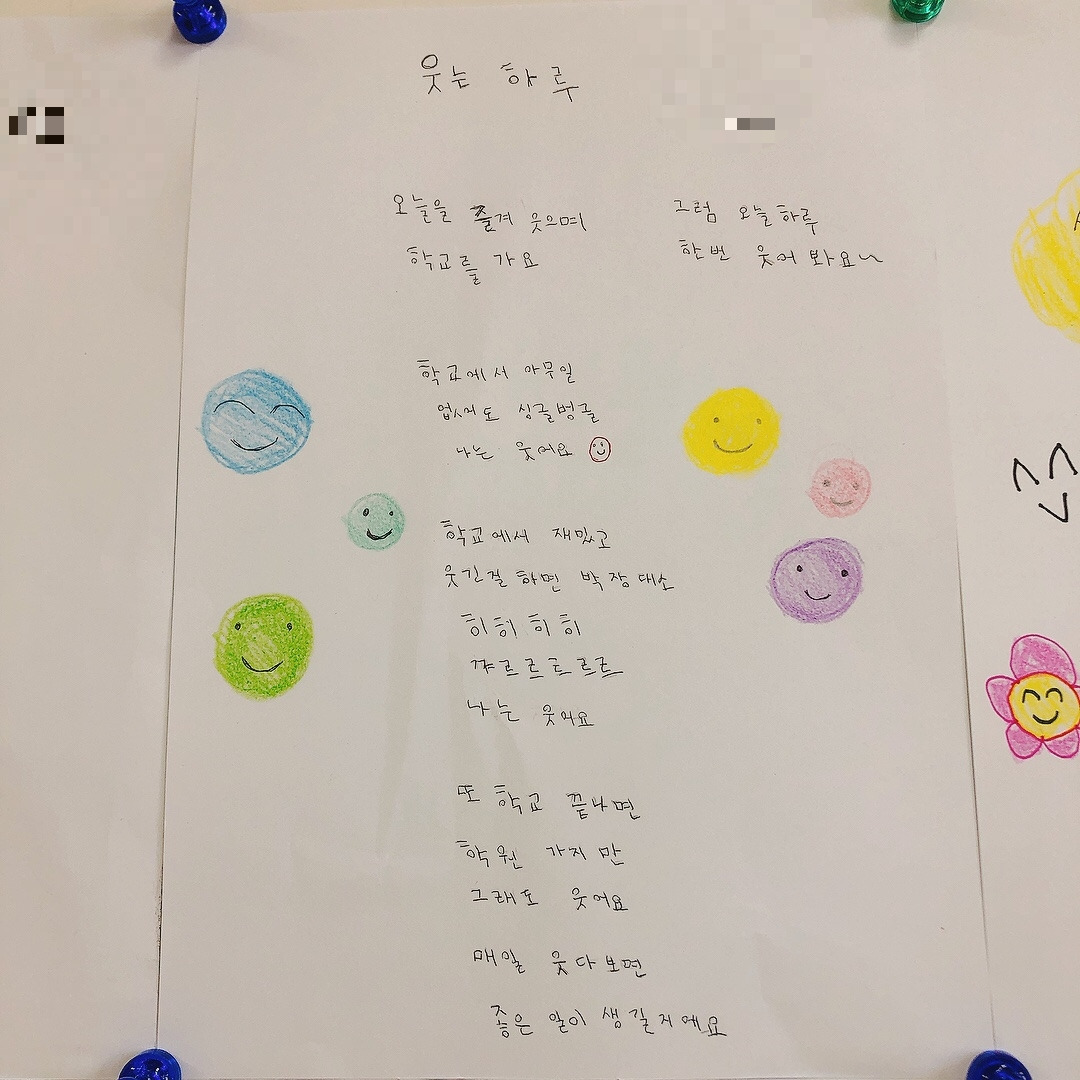 웃는 하루
오늘을 즐겨 웃으며
학교를 가요
학교에서 아무일
없어도 싱글벙글
나는 웃어요
학교에서 재밌고
웃긴걸 하면 박장대소
히히 히히
꺄르르르르르
나는 웃어요
또 학교 끝나면
학원 가지만
그래도 웃어요
매일 웃다보면
좋은 일이 생길지에요
그럼 오늘하루
한번 웃어 봐요~